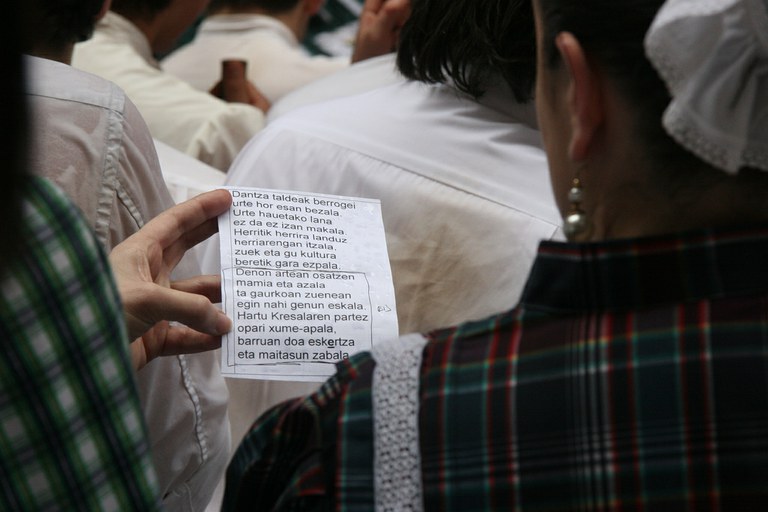 Dantza taldeak berrogei
urte hor esan bezala.
Urte hauetako lana
ez da ez izan makala.
Herritik herrira landuz
herriarengan itzala.
zuek eta gu kultura
beretik gara ezpala.
Denon artean osatzen
mamia eta azala
ta gaurkoan zuenean
egin nahi genun eskala.
Hartu Kresalaren partez
opari xume-apala,
barruan doa eskertza
eta maitasun zabala